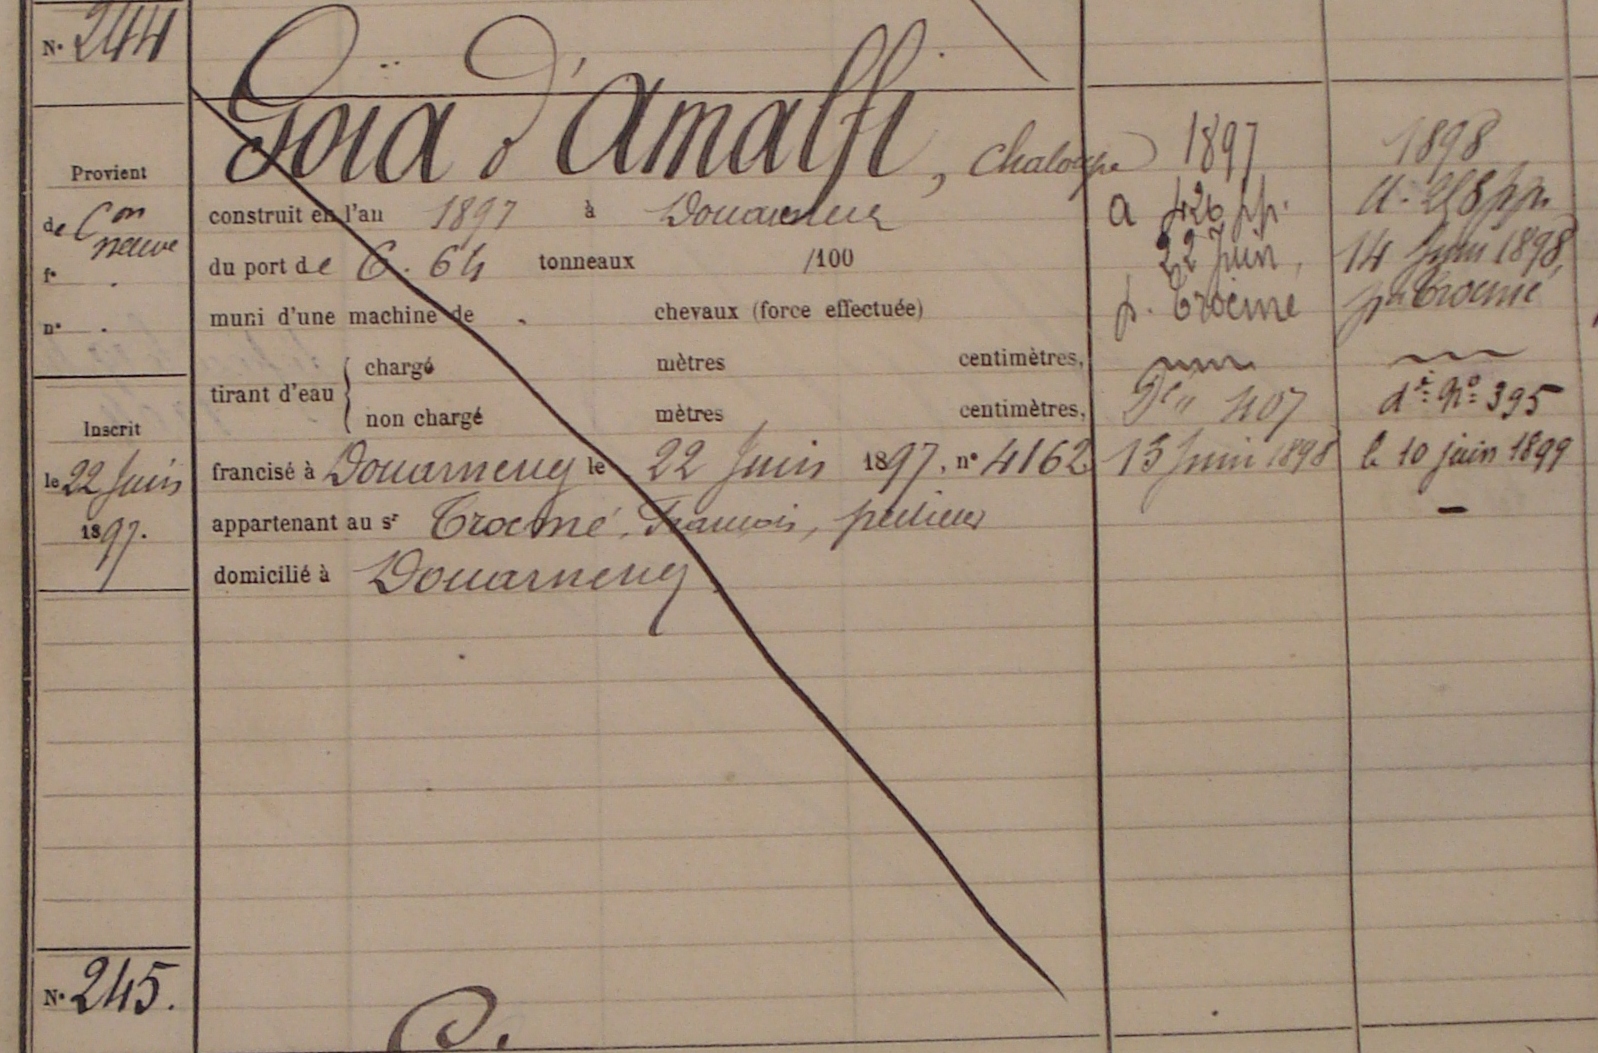 N° 244
Goïa d'Amalfi, Chaloupe
Provient
de Con
neuve
f° .
n° .
Inscrit
le 22 Juin
1897.
construit en l'an 1897 à Douarnenez
du port de 6.64 tonneaux /100
muni d'une machine de chevaux (force effectuée)
tirant d'eau
chargé mètres centimètres,
non chargé mètres centimètres,
francisé à Douarnenez le 22 Juin 1897, n° 4162
appartenant au sr Trocmé, François, pêcheur
domicilié à Douarnenez
1897
a 426 pp.
22 Juin,
p. Trocmé
407
13 Juin 1898
1898
a. 258 pp.
14 Juin 1898,
pn Trocmé
dt. No 395
le 10 juin 1899
—
N° 245.